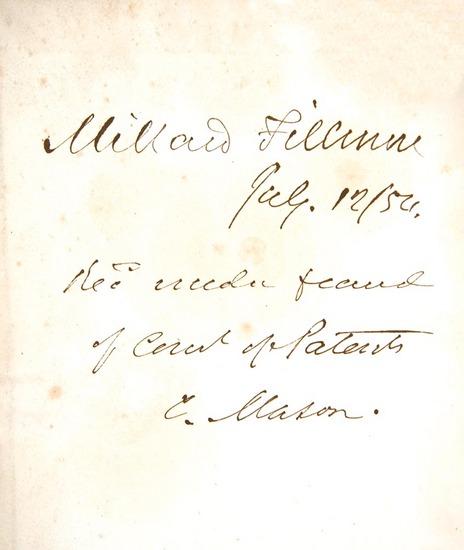 Millard Fillmore
July. 12/54.
Recd under frank
of Comr of Patents
C. Mason.